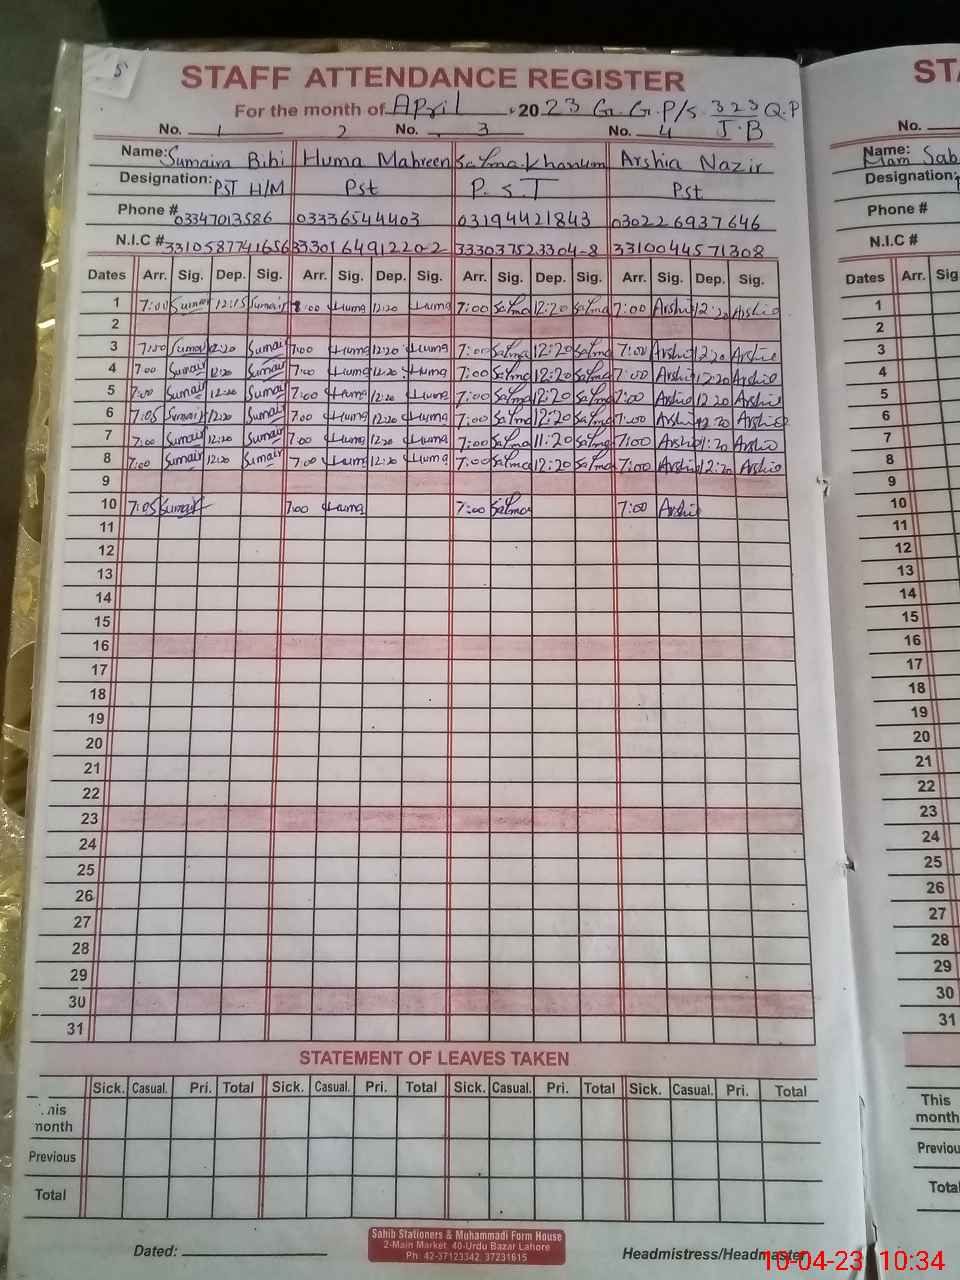 5
STAFF ATTENDANCE REGISTER
For the month of April 2023 G.G.P/s 323 Q.P
J.B
No. 1 2 No. 3 No. 4
Name: Sumaira Bibi Huma Mahreen Salma Khanum Arshia Nazir
Designation: PST H/M Pst P.S.T Pst
Phone # 03347013586 03336544403 03194421843 030226937646
N.I.C # 3310587741656 333016491220-2 333037523304-8 3310044571308
Dates Arr. Sig. Dep. Sig. Arr. Sig. Dep. Sig. Arr. Sig. Dep. Sig. Arr. Sig. Dep. Sig.
1 7:00 Sumair 12:15 Sumair 8:00 Huma 12:20 Huma 7:00 Salma 12:20 Salma 7:00 Arshia 12:20 Arshia
2
3 7:00 Sumair 12:20 Sumair 7:00 Huma 12:20 Huma 7:00 Salma 12:20 Salma 7:00 Arshia 12:20 Arshia
4 7:00 Sumair 12:20 Sumair 7:00 Huma 12:20 Huma 7:00 Salma 12:20 Salma 7:00 Arshia 12:20 Arshia
5 7:00 Sumair 12:20 Sumair 7:00 Huma 12:20 Huma 7:00 Salma 12:20 Salma 7:00 Arshia 12:20 Arshia
6 7:05 Sumair 12:20 Sumair 7:00 Huma 12:20 Huma 7:00 Salma 12:20 Salma 7:00 Arshia 12:20 Arshia
7 7:00 Sumair 12:20 Sumair 7:00 Huma 12:20 Huma 7:00 Salma 11:20 Salma 7:00 Arshia 11:20 Arshia
8 7:00 Sumair 12:20 Sumair 7:00 Huma 12:20 Huma 7:00 Salma 12:20 Salma 7:00 Arshia 12:20 Arshia
9
10 7:05 Sumair 7:00 Huma 7:00 Salma 7:00 Arshia
11
12
13
14
15
16
17
18
19
20
21
22
23
24
25
26
27
28
29
30
31
STATEMENT OF LEAVES TAKEN
Sick. Casual. Pri. Total Sick. Casual. Pri. Total Sick. Casual. Pri. Total Sick. Casual. Pri. Total
This month
Previous
Total
Dated: Headmistress/Headmaster
Sahib Stationers & Muhammadi Form House
2-Main Market, 40-Urdu Bazar Lahore
Ph: 42-37123342, 37231615
No.
Name: Mam Sab
Designation:
Phone #
N.I.C #
Dates Arr. Sig
1
2
3
4
5
6
7
8
9
10
11
12
13
14
15
16
17
18
19
20
21
22
23
24
25
26
27
28
29
30
31
This
month
Previou
Total
10-04-23 10:34